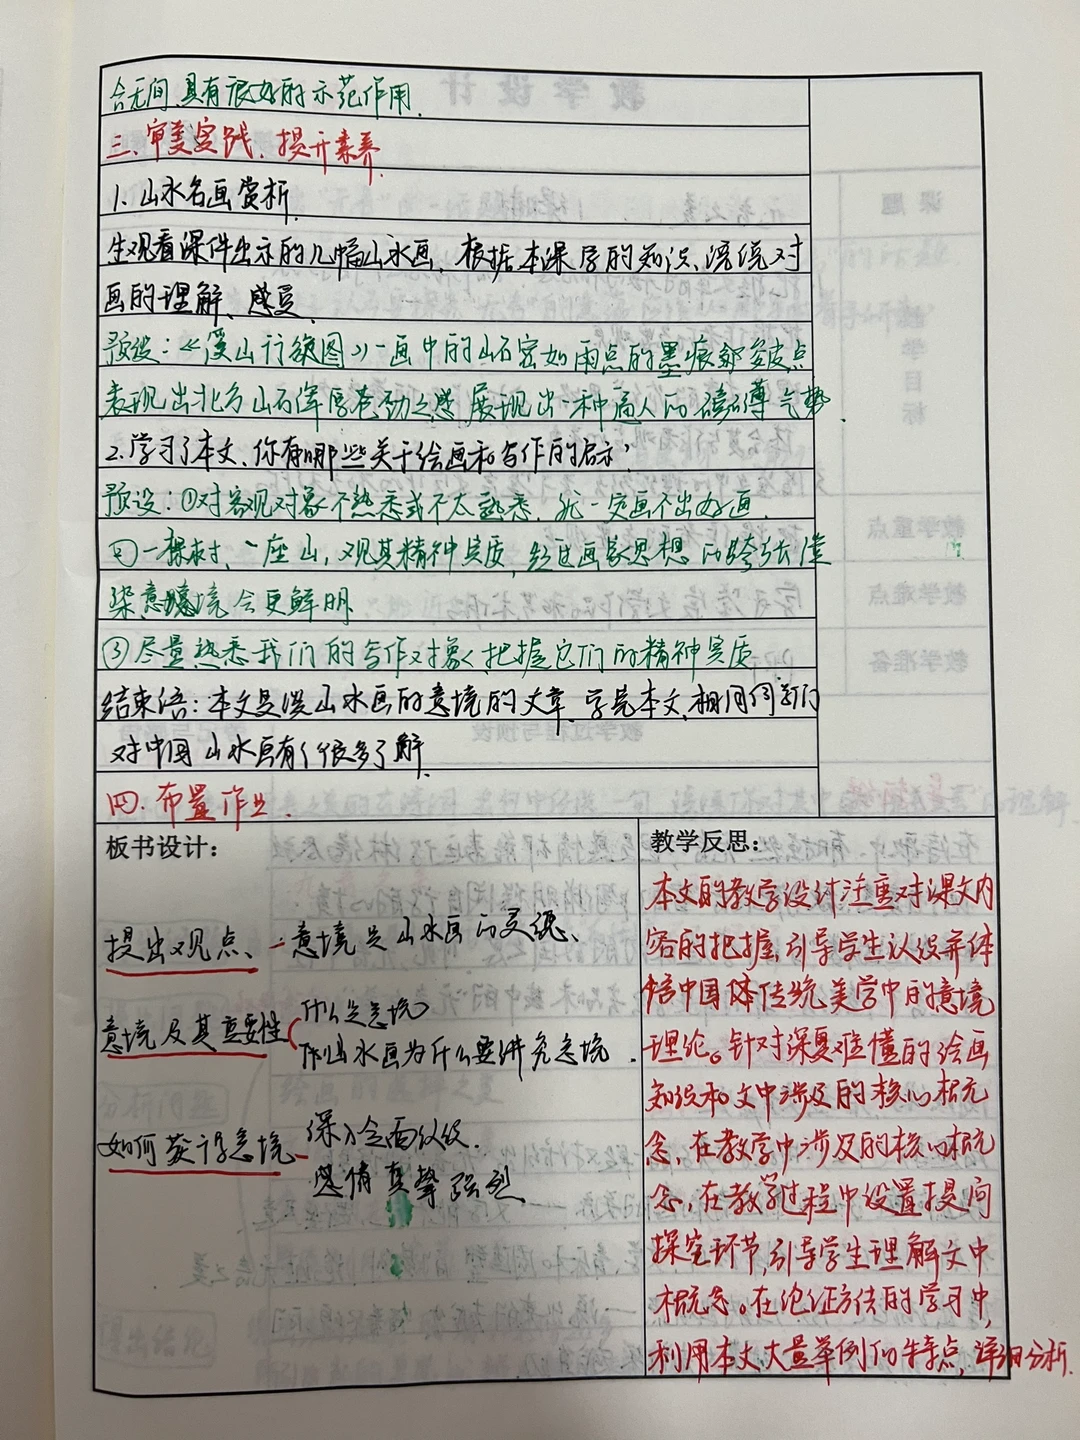 合无间,具有很好的示范作用.
三、审美实践、提升素养.
1.山水名画赏析.
生观看课件出示的几幅山水画,根据本课学的知识,谈谈对
画的理解、感受.
预设:《溪山行旅图》一画中的山石密如雨点的墨痕 皴点
表现出北方山石浑厚苍劲之感,展现出一种逼人的磅礴气势.
2.学习了本文、你有哪些关于绘画和写作的启示?
预设:①对客观对象不熟悉或不太熟悉,就一定画不出好画.
②一棵树、一座山,观其精神实质,经过画家思想的夸张渲
染,意境会更鲜明
③尽量熟悉我们的写作对象,把握它们的精神实质
结束语:本文是谈山水画的意境的文章,学完本文,相信同学们
对中国山水画有了很多了解.
四.布置作业.
板书设计:
提出观点、—意境是山水画的灵魂、
意境及其重要性
什么是意境
山水画为什么要讲究意境.
如何获得意境—
深入全面认识.
感情真挚强烈
教学反思:
本文的教学设计注重对课文内
容的把握,引导学生认识并体
悟中国传统美学中的意境
理论。针对深复难懂的绘画
知识和文中涉及的核心概
念,在教学中涉及的核心概
念,在教学过程中设置提问
探究环节,引导学生理解文中
概念。在论证方法的学习中,
利用本文大量举例的特点,详细分析.